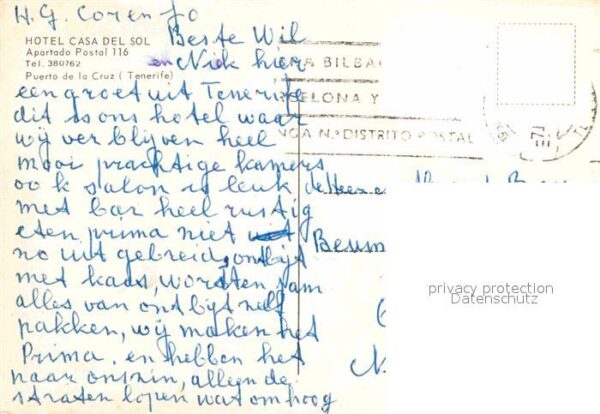 H.G. Cor en Jo
HOTEL CASA DEL SOL
Apartado Postal 116
Tel. 380762
Puerto de la Cruz ( Tenerife)
Beste Wil
en Niek hier
een groet uit Tenerife
dit is ons hotel waar
wij ver blijven heel
mooi prachtige kamers
ook salon is leuk
met bar heel rustig
eten prima niet
no uit gebreid, ontbijt
met kaas, worsten, jam
alles van ontbijt zelf
pakken, wij maken het
Prima. en hebben het
naar onszin, alleen de
straten lopen wat omhoog
BILBA
ELONA Y
N.º DISTRITO POSTAL
de Heer
Beum
privacy protection
Datenschutz